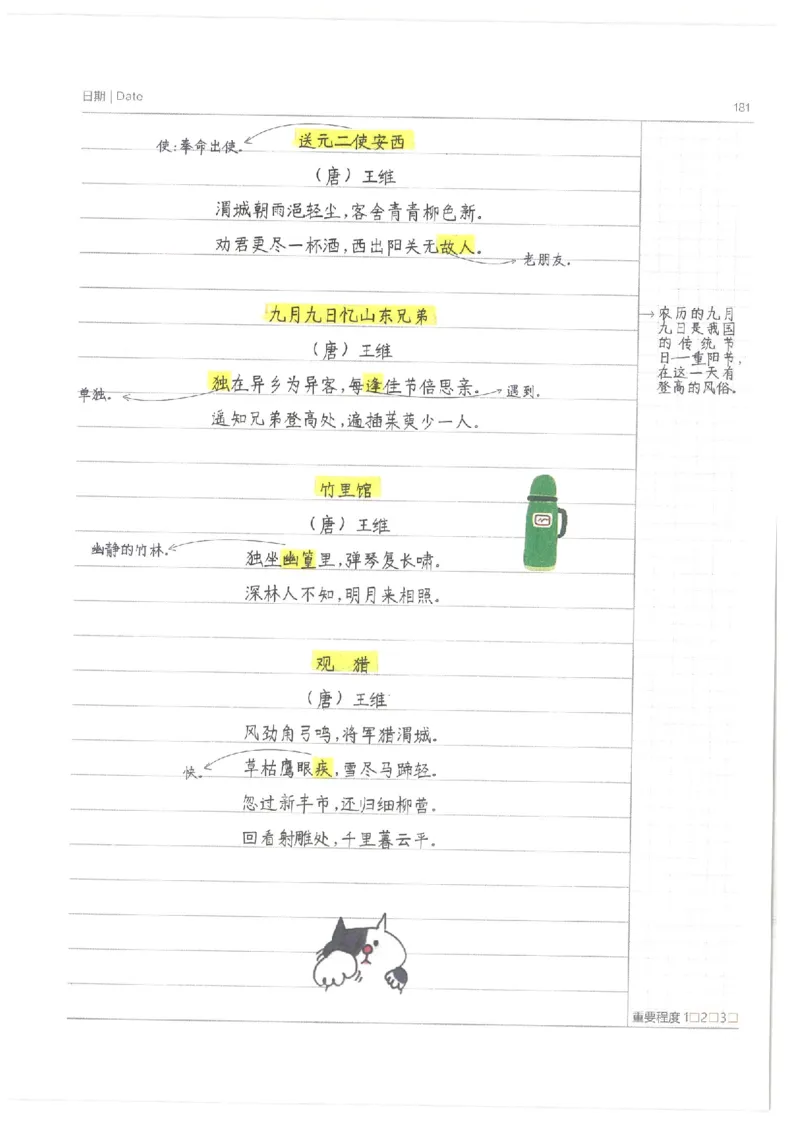 日期 | Date
181
送元二使安西
使:奉命出使。
(唐) 王维
渭城朝雨浥轻尘,客舍青青柳色新。
劝君更尽一杯酒,西出阳关无故人。
老朋友。
九月九日忆山东兄弟
农历的九月
九日是我国
的传统节
日一重阳节,
在这一天有
登高的风俗。
(唐) 王维
独在异乡为异客,每逢佳节倍思亲。
单独。
遇到。
遥知兄弟登高处,遍插茱萸少一人。
竹里馆
(唐) 王维
幽静的竹林。
独坐幽篁里,弹琴复长啸。
深林人不知,明月来相照。
观 猎
(唐) 王维
风劲角弓鸣,将军猎渭城。
快。
草枯鹰眼疾,雪尽马蹄轻。
忽过新丰市,还归细柳营。
回看射雕处,千里暮云平。
重要程度 1□2□3□